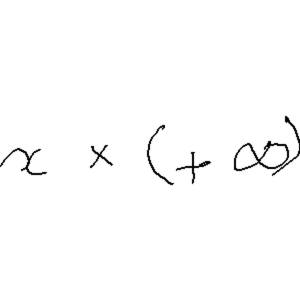 x × (+ ∞)